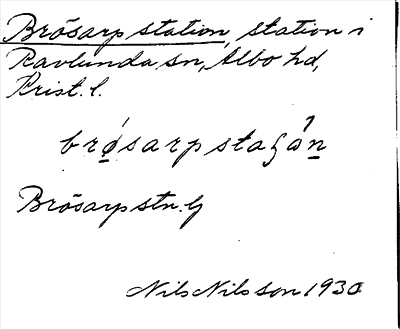 Brösarp station, station i
Ravlunda sn, Albo hd,
Krist. l.
brø̀sarp staʂå̀n
Brösarp stn. G
Nils Nilsson 1930